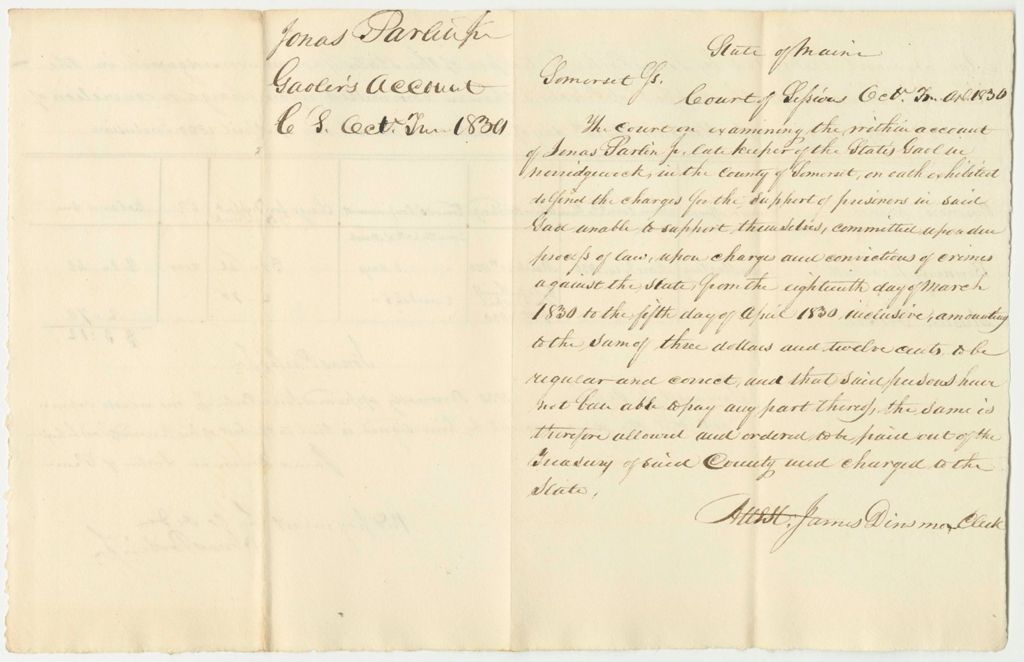 Jonas Parlin Jr
Gaoler's Account
C S. Octr. Tm 1830
State of Maine
Somerset Ss.
Court of Sessions Octr. Tm AD 1830
The Court on examining the within account
of Jonas Parlin Jr, late keeper of the States Gaol in
Norridgewock, in the County of Somerset, on oath exhibited
do find the charges for the support of prisoners in said
Gaol unable to support themselves, committed upon due
process of law, upon charges and convictions of crimes
against the State, from the eighteenth day of March
1830 to the fifth day of April 1830 inclusive, amounting
to the sum of three dollars and twelve cents to be
regular and correct, and that said persons have
not been able to pay any part thereof, the same is
therefore allowed and ordered to be paid out of the
Treasury of said County and charged to the
State.
Attest: James Dinsmore Clerk